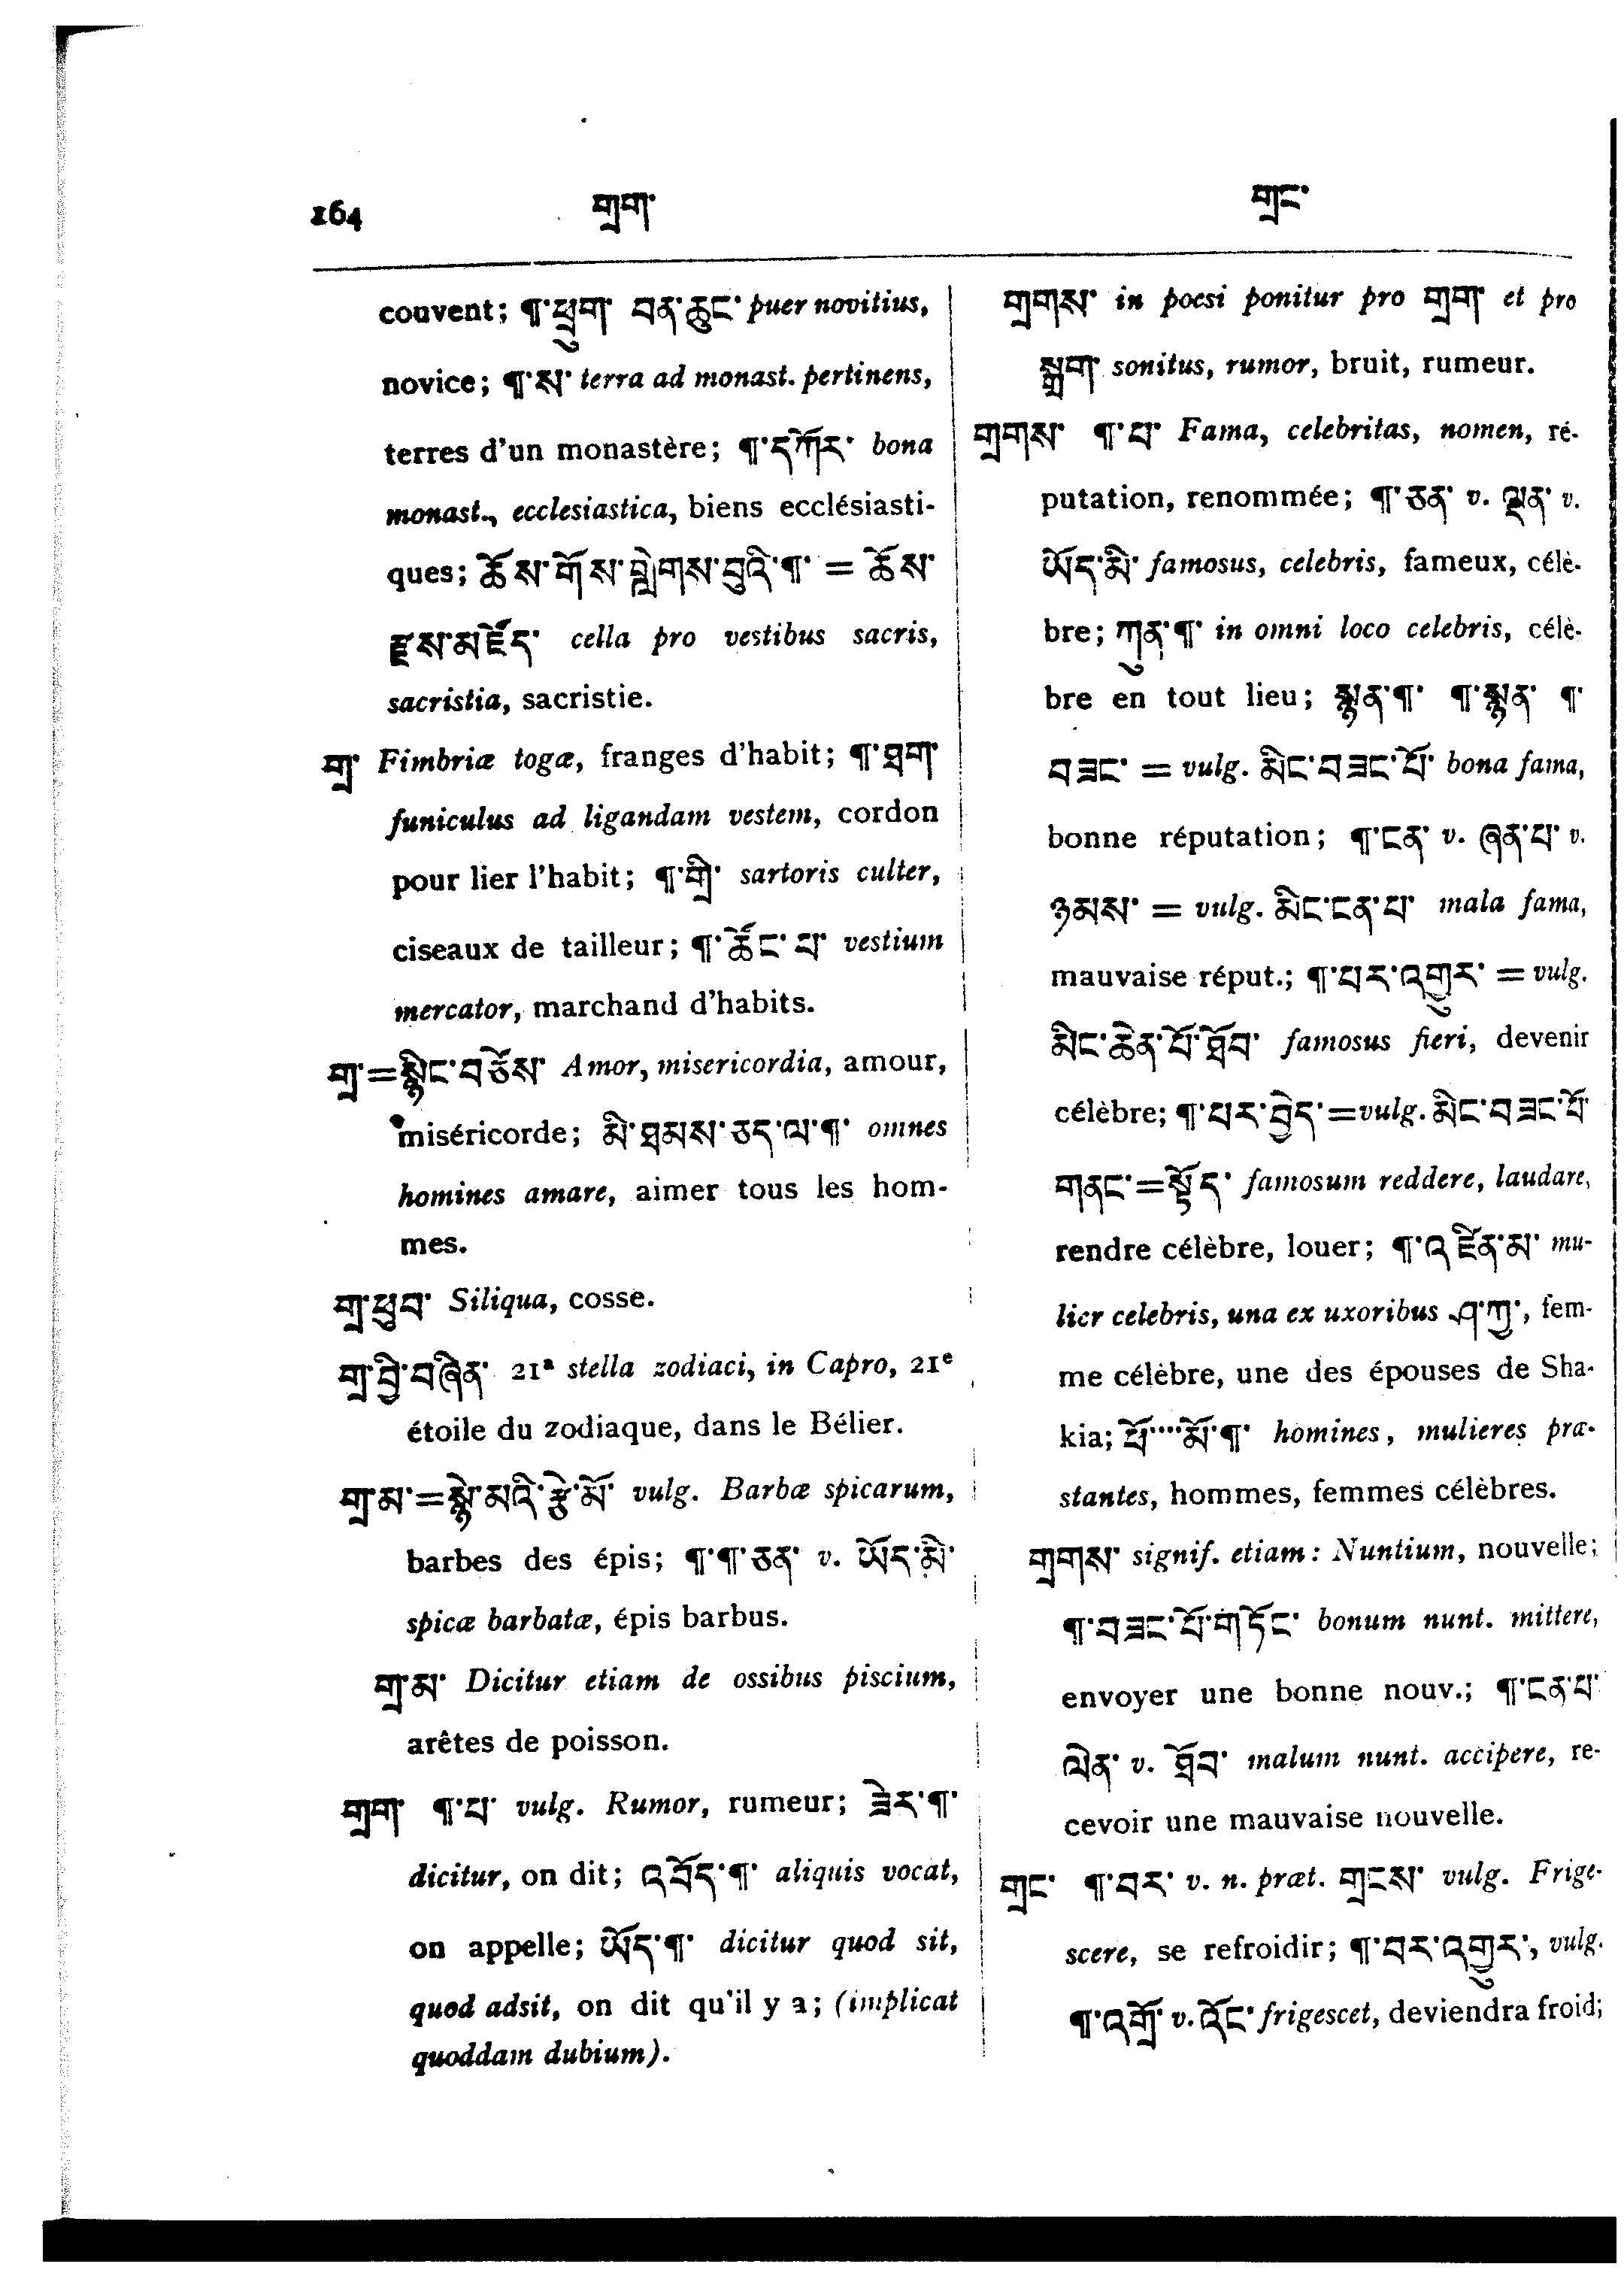 164 གྲག་ གྲང་
couvent; ¶་ཕྲུག་ བན་ཆུང་ puer novitius,
novice; ¶་ས་ terra ad monast. pertinens,
terres d'un monastère; ¶་དཀོར་ bona
monast., ecclesiastica, biens ecclésiasti-
ques; ཆོས་གོས་བླེགས་བུའི་¶་ = ཆོས་
རྫས་མཛོད་ cella pro vestibus sacris,
sacristia, sacristie.
གྲ་ Fimbriæ togæ, franges d'habit; ¶་ཐག་
funiculus ad ligandam vestem, cordon
pour lier l'habit; ¶་གྲི་ sartoris culter,
ciseaux de tailleur; ¶་ཚོང་པ་ vestium
mercator, marchand d'habits.
གྲ་=སྙིང་བཙོས་ Amor, misericordia, amour,
miséricorde; མི་ཐམས་ཅད་ལ་¶་ omnes
homines amare, aimer tous les hom-
mes.
གྲ་ཕུབ་ Siliqua, cosse.
གྲ་བྱི་བཞིན་ 21ª stella zodiaci, in Capro, 21e
étoile du zodiaque, dans le Bélier.
གྲ་མ་=སྙེ་མའི་རྩེ་མོ་ vulg. Barbæ spicarum,
barbes des épis; ¶་¶་ཅན་ v. ཡོད་མི་
spicæ barbatæ, épis barbus.
གྲ་མ་ Dicitur etiam de ossibus piscium,
arêtes de poisson.
གྲག་ ¶་པ་ vulg. Rumor, rumeur; ཟེར་¶་
dicitur, on dit; འབོད་¶་ aliquis vocat,
on appelle; ཡོད་¶་ dicitur quod sit,
quod adsit, on dit qu'il y a; (implicat
quoddam dubium).
གྲགས་ in poesi ponitur pro གྲག་ et pro
སྒྲག་ sonitus, rumor, bruit, rumeur.
གྲགས་ ¶་པ་ Fama, celebritas, nomen, ré-
putation, renommée; ¶་ཅན་ v. ལྡན་ v.
ཡོད་མི་ famosus, celebris, fameux, célè-
bre; ཀུན་¶་ in omni loco celebris, célè-
bre en tout lieu; སྙན་¶་ ¶་སྙན་ ¶་
བཟང་ = vulg. མིང་བཟང་པོ་ bona fama,
bonne réputation; ¶་ངན་ v. ཞན་པ་ v.
ཉམས་ = vulg. མིང་ངན་པ་ mala fama,
mauvaise réput.; ¶་པར་འགྱུར་ = vulg.
མིང་ཆེན་པོ་ཐོབ་ famosus fieri, devenir
célèbre; ¶་པར་བྱེད་=vulg. མིང་བཟང་པོ་
གནང་=སྟོད་ famosum reddere, laudare,
rendre célèbre, louer; ¶་འཛིན་མ་ mu-
lier celebris, una ex uxoribus ཤ་ཀྱ་, fem-
me célèbre, une des épouses de Sha-
kia; པོ་····མོ་¶་ homines, mulieres præ-
stantes, hommes, femmes célèbres.
གྲགས་ signif. etiam: Nuntium, nouvelle;
¶་བཟང་པོ་གཏོང་ bonum nunt. mittere,
envoyer une bonne nouv.; ¶་ངན་པ་
ལེན་ v. ཐོབ་ malum nunt. accipere, re-
cevoir une mauvaise nouvelle.
གྲང་ ¶་བར་ v. n. præt. གྲངས་ vulg. Frige-
scere, se refroidir; ¶་བར་འགྱུར་, vulg.
¶་འགྲོ་ v. འོང་ frigescet, deviendra froid;